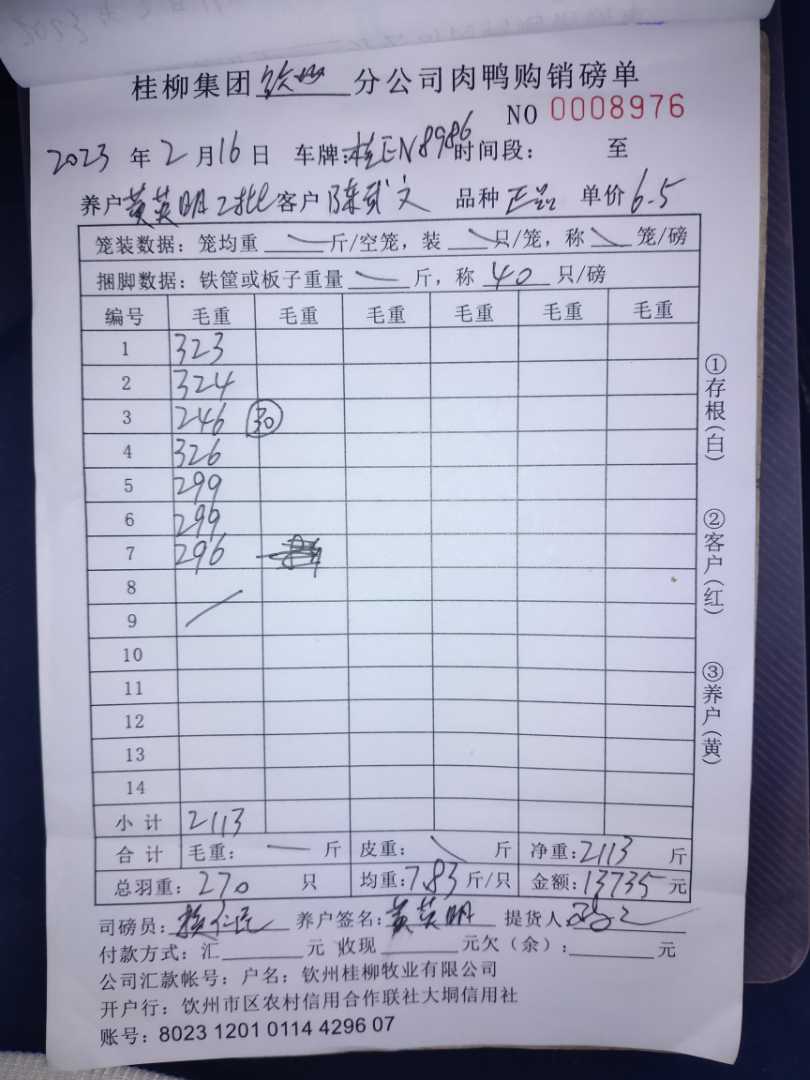 桂柳集团钦州分公司肉鸭购销磅单
NO 0008976
2023年2月16日 车牌:桂EN8986 时间段: 至
养户黄英明2批 客户陈武文 品种正品 单价6.5
笼装数据：笼均重 斤/空笼，装 只/笼，称 笼/磅
捆脚数据：铁筐或板子重量 斤，称 40 只/磅
编号 毛重 毛重 毛重 毛重 毛重 毛重
1 323
2 324
3 246 30
4 326
5 299
6 299
7 296
8
9
10
11
12
13
14
小计 2113
合计 毛重： 斤 皮重： 斤 净重：2113 斤
总羽重：270 只 均重：7.83 斤/只 金额：13735 元
司磅员： 养户签名：黄英明 提货人
付款方式：汇 元 收现 元欠（余）： 元
公司汇款帐号：户名：钦州桂柳牧业有限公司
开户行：钦州市区农村信用合作联社大垌信用社
账号：8023 1201 0114 4296 07
①存根(白)
②客户(红)
③养户(黄)